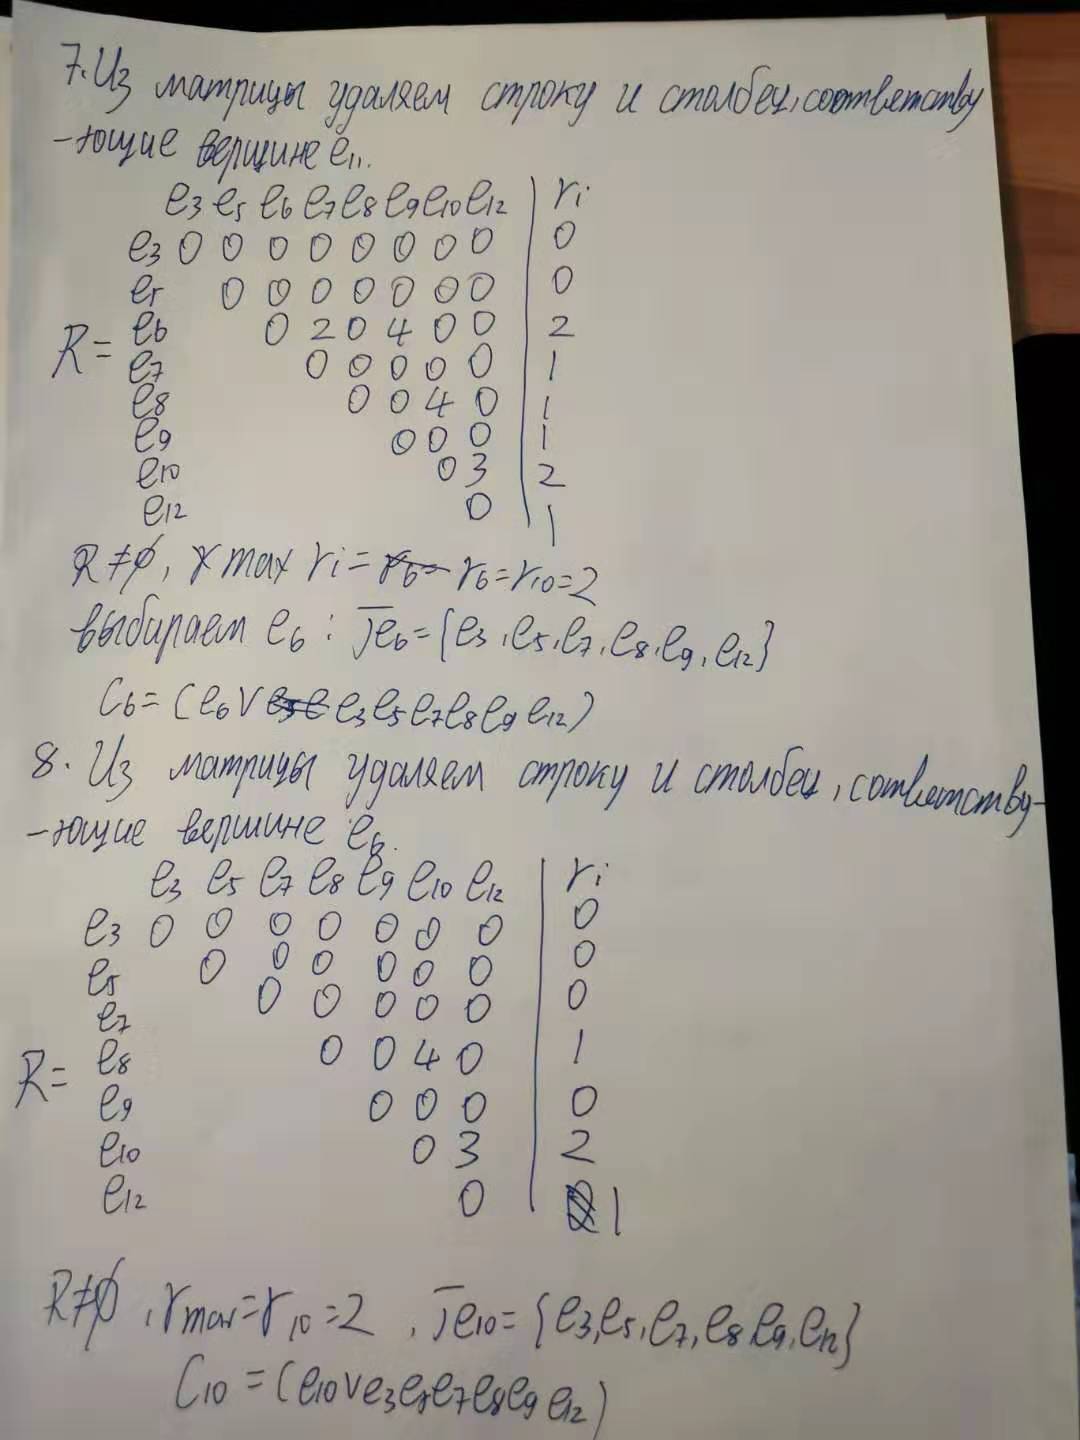 7. Из матрицы удаляем строку и столбец, соответству
-ющие вершине e₁₁.
e₃ e₅ e₆ e₇ e₈ e₉ e₁₀ e₁₂ | ri
e₃ 0 0 0 0 0 0 0 0 | 0
e₅ 0 0 0 0 0 0 0 | 0
e₆ 0 2 0 4 0 0 | 2
R=
e₇ 0 0 0 0 0 | 1
e₈ 0 0 4 0 | 1
e₉ 0 0 0 | 1
e₁₀ 0 3 | 2
e₁₂ 0 | 1
R≠∅, r max ri = r₆=r₁₀=2
выбираем e₆ : Je₆={e₃,e₅,e₇,e₈,e₉,e₁₂}
C₆=(e₆∨e₃e₅e₇e₈e₉e₁₂)
8. Из матрицы удаляем строку и столбец, сответству-
-ющие вершине e₆.
e₃ e₅ e₇ e₈ e₉ e₁₀ e₁₂ | ri
e₃ 0 0 0 0 0 0 0 | 0
e₅ 0 0 0 0 0 0 | 0
e₇ 0 0 0 0 0 | 0
R=
e₈ 0 0 4 0 | 1
e₉ 0 0 0 | 0
e₁₀ 0 3 | 2
e₁₂ 0 | 1
R≠∅, rmax=r₁₀=2, Je₁₀={e₃,e₅,e₇,e₈e₉,e₁₂}
C₁₀=(e₁₀∨e₃e₅e₇e₈e₉e₁₂)